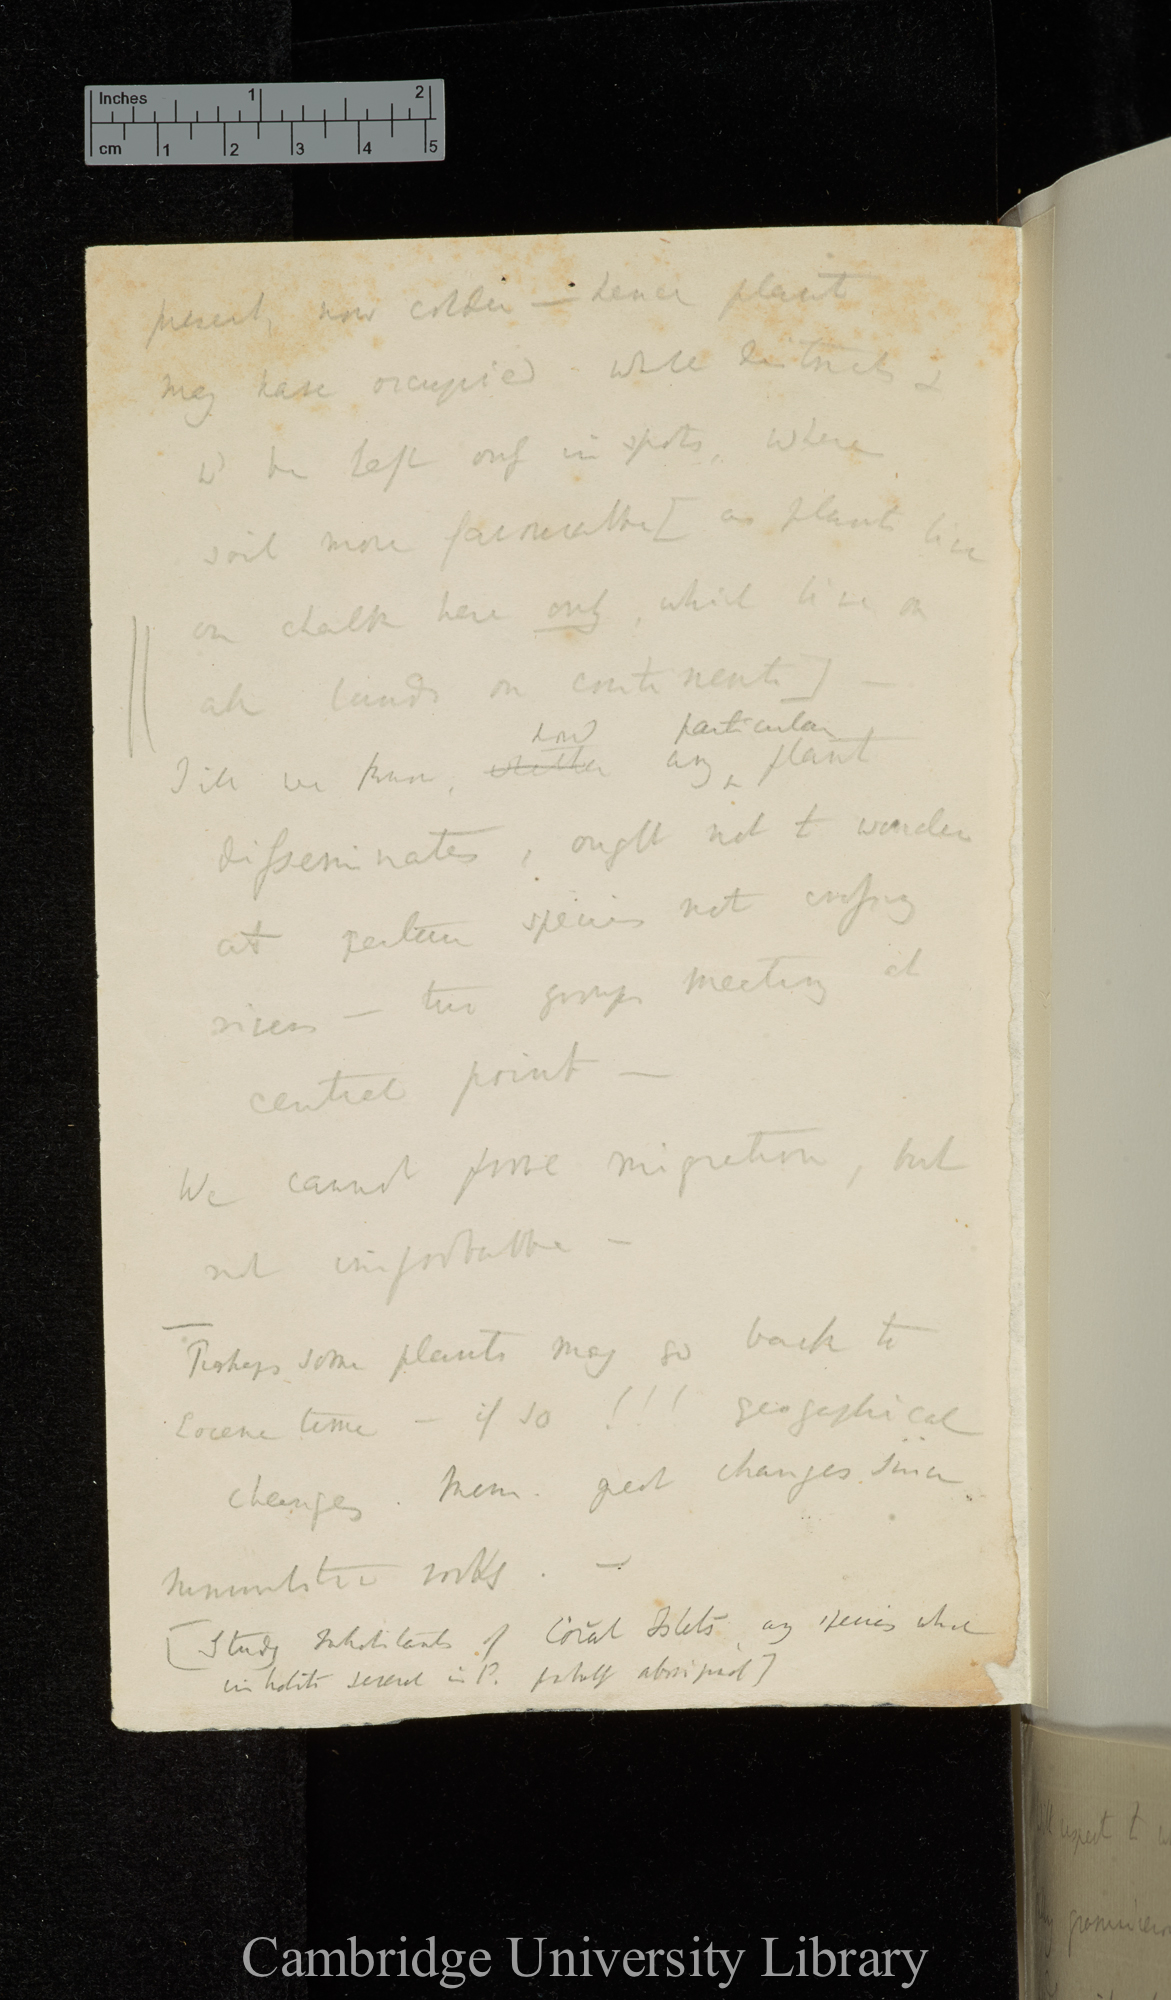 Inches 1 2
cm 1 2 3 4 5
present, now colder — hence plant
may have occupied whole districts &
wd be left only in spots, where
soil more favourable [ as plants live
on chalk here only, which live on
all lands on continents ] —
how particular
Till we know, whether any ^ plant
disseminates, ought not to wonder
at certain species not crossing
rivers — two groups meeting at
central point —
We cannot prove migration, but
not improbable —
Perhaps some plants may go back to
Eocene time — if so !!! geographical
changes. Mem. great changes since
nummulitic rocks. —
[Study Inhabitants of Coral Islets, any species which
inhabits several in P. probably aboriginal]
will respect to
Cambridge University Library